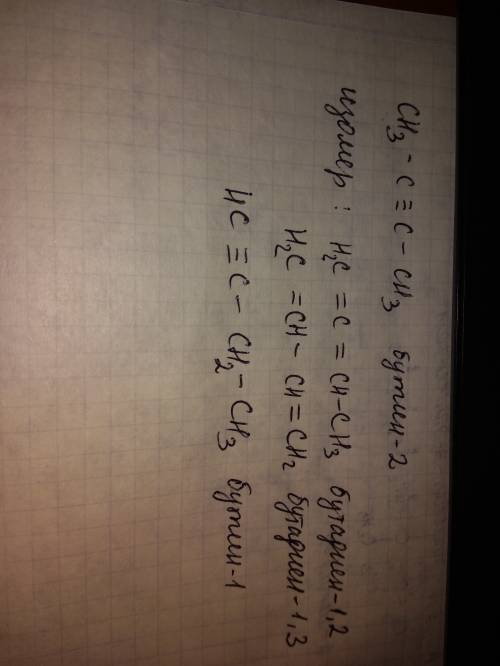 CH₃ - C ≡ C - CH₃ бутин-2
изомер : H₂C = C = CH-CH₃ бутадиен-1,2
H₂C = CH - CH = CH₂ бутадиен-1,3
HC ≡ C - CH₂ - CH₃ бутин-1